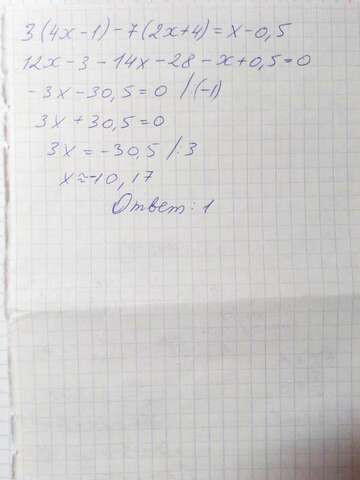 3(4x-1)-7(2x+4)=x-0,5
12x-3-14x-28-x+0,5=0
-3x-30,5=0 /(-1)
3x+30,5=0
3x=-30,5 /:3
x≈-10,17
Ответ: 1